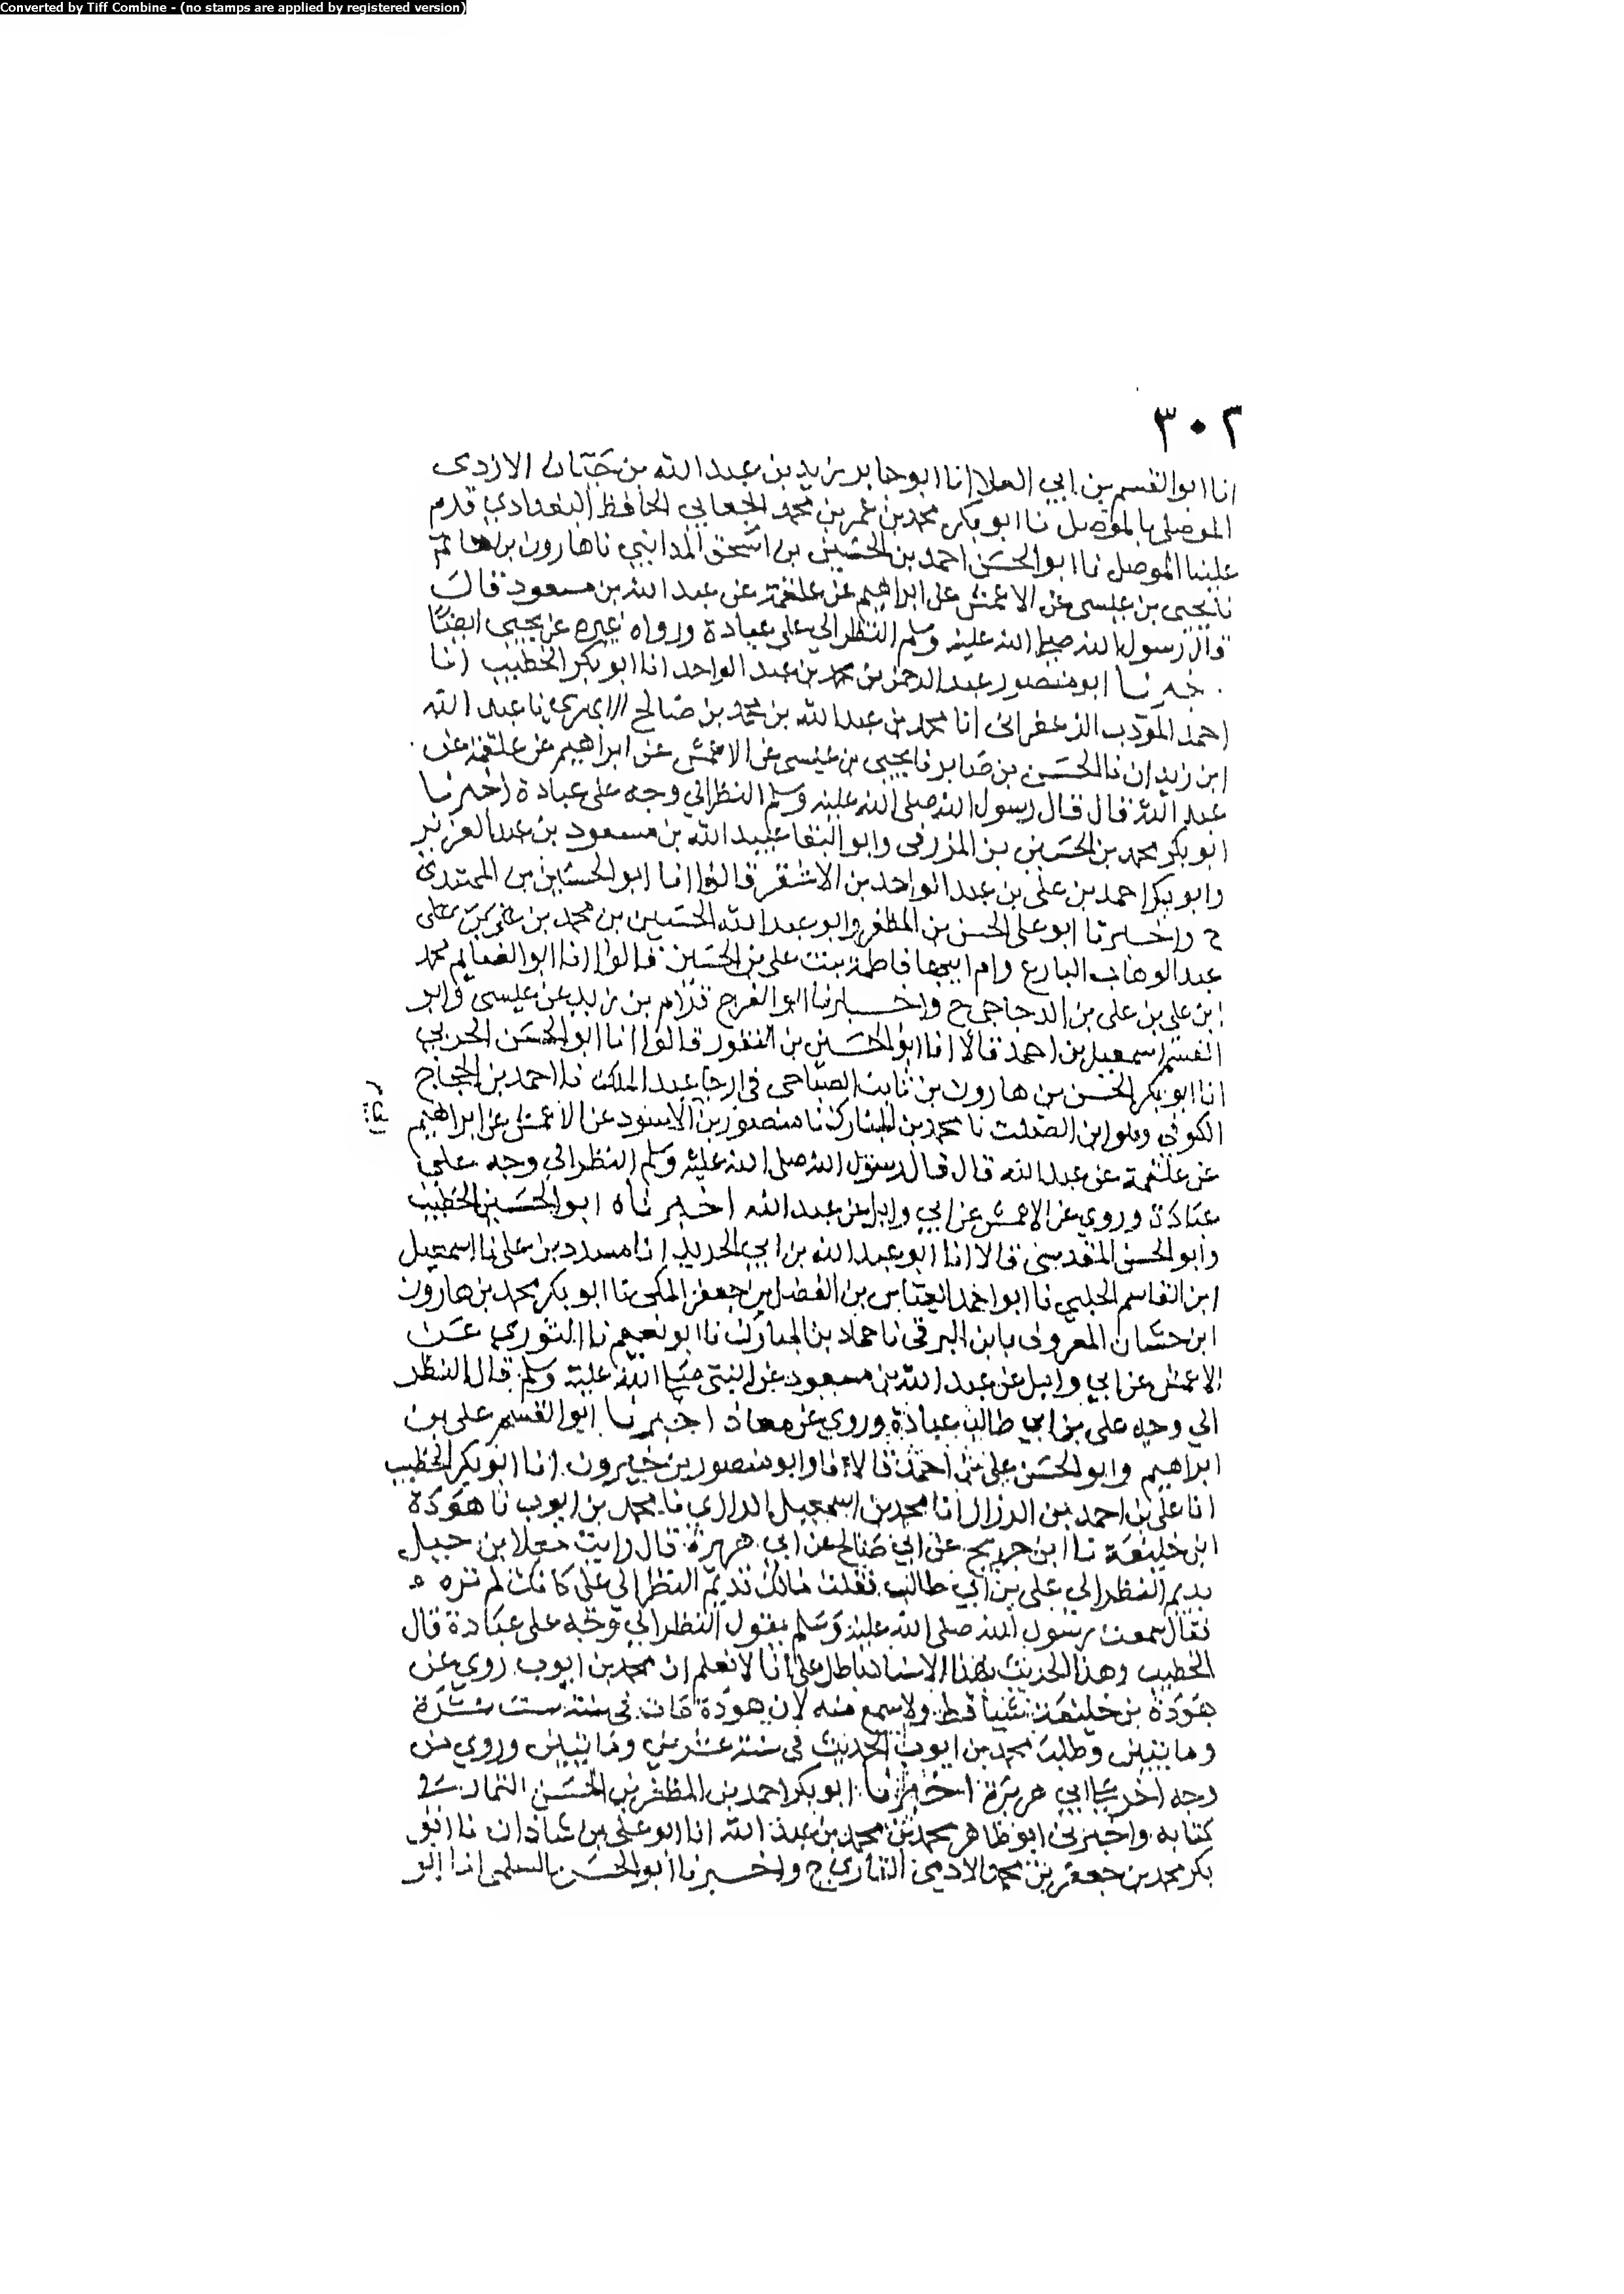 Converted by Tiff Combine - (no stamps are applied by registered version)
٣٠٢
انا ابو القسم بن ابي العلا انا ابو جابر زيد بن عبد الله بن حبان الازدى
الموصلى بالموصل نا ابو بكر محمد بن عمر بن محمد الجعابي الحافظ البغدادي قدم
علينا الموصل نا ابو الحسن احمد بن الحسين بن اسحق المدايني نا هارون بن حاتم
نا يحيى بن عيسى عن الاعمش عن ابراهيم عن علقمة عن عبد الله بن مسعود قال
قال رسول الله صلى الله عليه وسلم النظر الي على عبادة ورواه غيره عن يحيى ايضا
خبرنا ابو منصور عبد الرحمن بن محمد بن عبد الواحد انا ابو بكر الخطيب انا
احمد المودب الزعفرانى انا محمد بن عبد الله بن محمد بن صالح الابهري نا عبد الله
ابن زيدان نا الحسن بن صابر نا يحيى بن عيسى عن الاعمش عن ابراهيم عن علقمة عن
عبد الله قال قال رسول الله صلى الله عليه وسلم النظر الي وجه على عبادة اخبرنا
ابو بكر محمد بن الحسين بن المزرفى وابو البقا عبيد الله بن مسعود بن عبد العزيز
وابو بكر احمد بن على بن عبد الواحد بن الاشقر قالوا انا ابو الحسين بن المهتدى
ح واخبرنا ابو على الحسن بن المظفر وابو عبد الله الحسين بن محمد بن
عبد الوهاب البارع وام ابيها فاطمة بنت على بن الحسين قالوا انا ابو الغنايم محمد
ابن على بن على بن الدجاجى ح واخبرنا ابو الفرج قوام بن زيد بن عيسى وابو
القسم اسمعيل بن احمد قالا انا ابو الحسين بن النقور قالوا انا ابو الحسن الحربي
انا ابو بكر الحسن بن هارون بن ثابت الصباحى فى ارجا عبد الملك نا احمد بن الحجاج
الكوفي وهو ابن الصلت نا محمد بن المبارك نا منصور بن الاسود عن الاعمش عن ابراهيم
عن علقمة عن عبد الله قال قال رسول الله صلى الله عليه وسلم النظر الي وجه على
عبادة وروي عن الاعمش عن ابي وايل عن عبد الله اخبرناه ابو الحسين الخطيب
وابو الحسن المقدسى قالا انا ابو عبد الله بن ابي الحديد انا مسدد بن على نا اسمعيل
ابن القاسم الحلبي نا ابو احمد العباس بن الفضل بن جعفر المكى نا ابو بكر محمد بن هارون
ابن حسان المعروف بابن البرقى نا حماد بن المبارك نا ابو نعيم نا الثوري عن
الاعمش عن ابي وايل عن عبد الله بن مسعود عن النبى صلى الله عليه وسلم قال النظر
الي وجه على بن ابي طالب عبادة وروي عن معاذ اخبرنا ابو القسم على بن
ابراهيم وابو الحسن على بن احمد قالا نا وابو منصور بن خيرون انا ابو بكر الخطيب
انا على بن احمد بن الرزاز انا محمد بن اسمعيل الرازي نا محمد بن ايوب نا هوذة
ابن خليفة نا ابن جريج عن ابي صالح عن ابي هريرة قال رايت معاذ بن جبل
يديم النظر الى على بن ابي طالب فقلت مالك تديم النظر الي على كانك لم تره
فقال سمعت رسول الله صلى الله عليه وسلم يقول النظر الي وجه على عبادة قال
الخطيب وهذا الحديث بهذا الاسناد باطل على انا لا نعلم ان محمد بن ايوب روي عن
هوذة بن خليفة شيئا قط ولا سمع منه لان هوذة مات فى سنة ست عشرة
وماتيين وطلب محمد بن ايوب الحديث فى سنة عشرين وماتيين وروي من
وجه اخر عن ابي هريرة اخبرنا ابو بكر احمد بن المظفر بن الحسن التمار في
كتابه واخبرنى ابو طاهر محمد بن محمد بن عبد الله انا ابو على بن شاذان نا ابو
بكر محمد بن جعفر بن محمد الادمي القاري ح واخبرنا ابو الحسن السلمى انا ابو